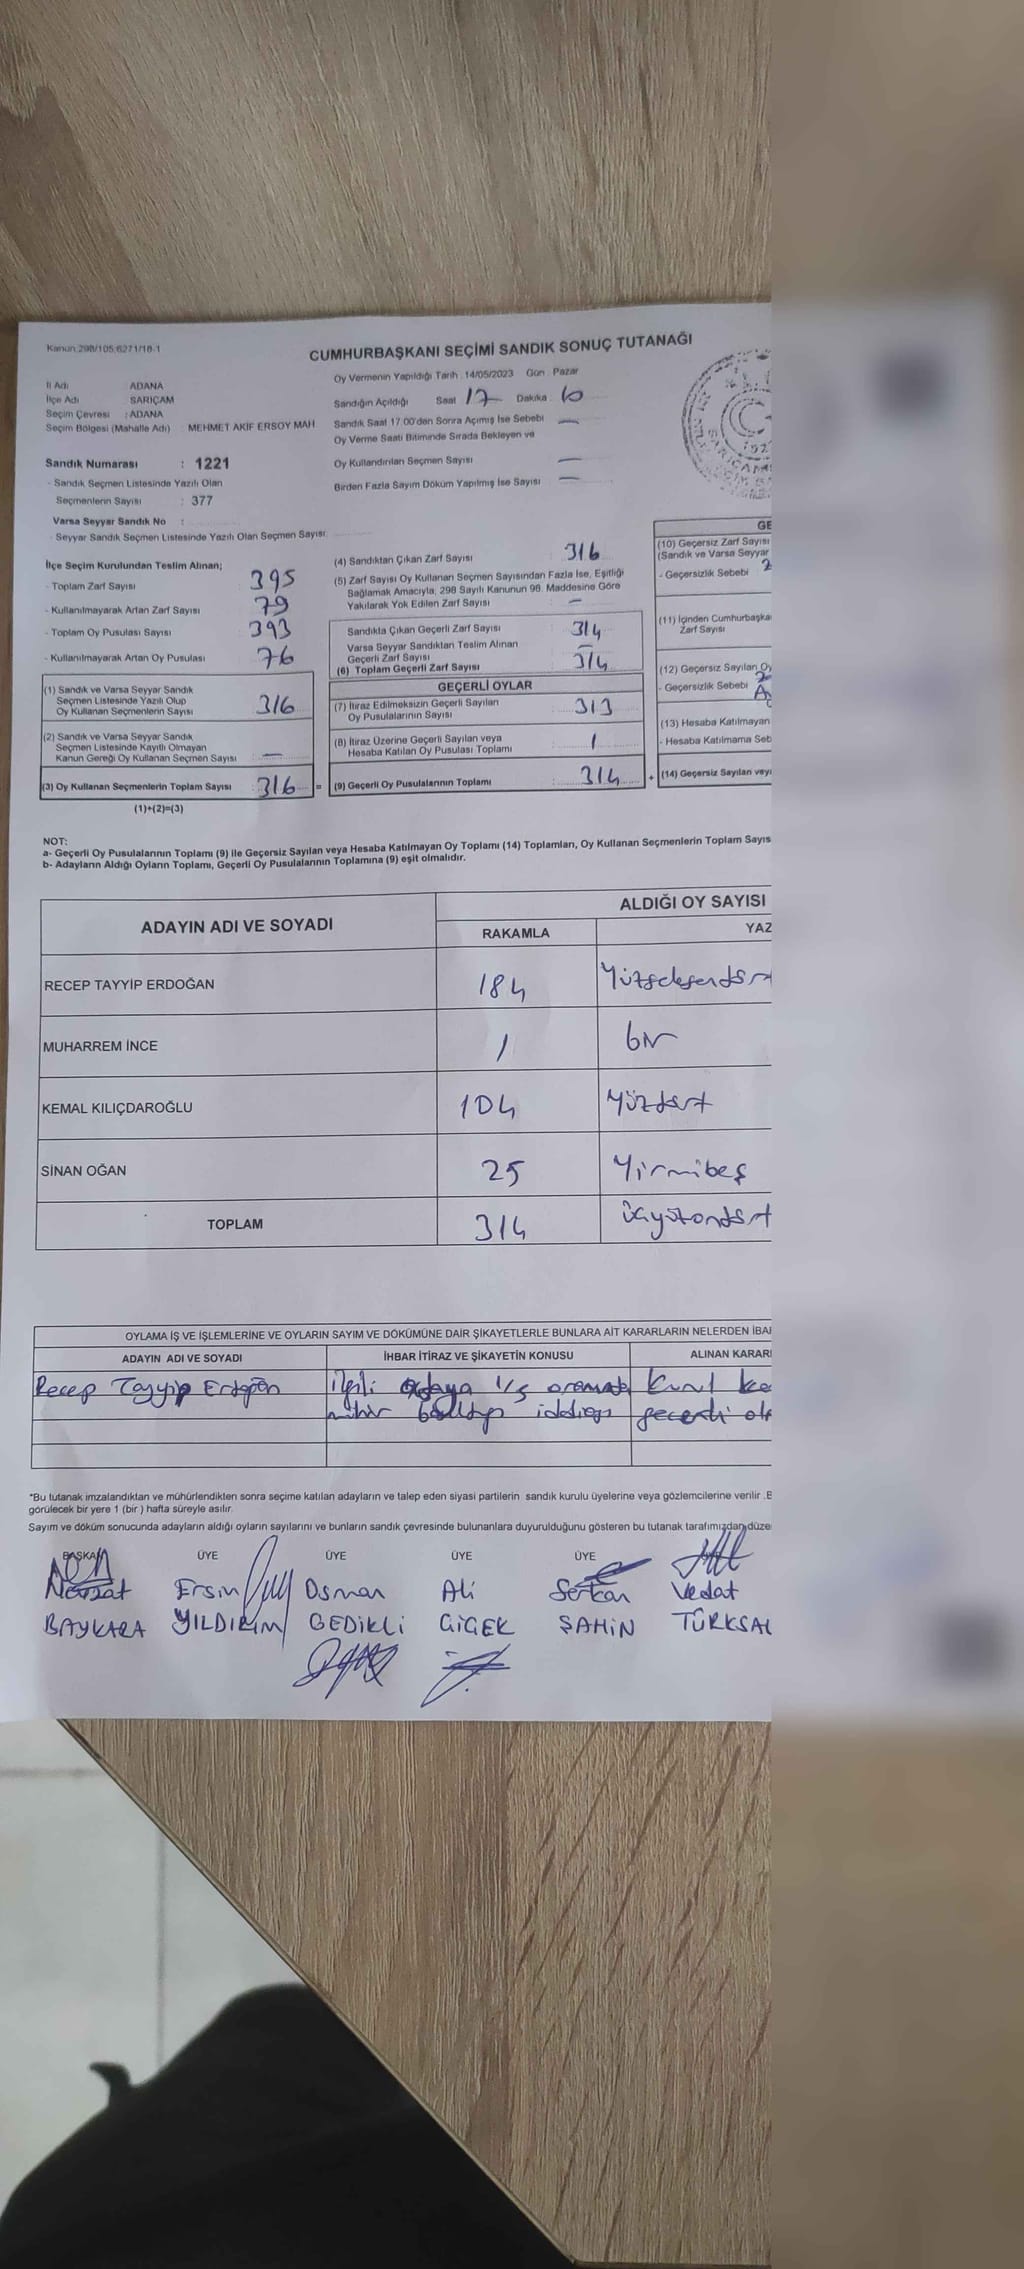 Kanun:298/105,6271/16-1
CUMHURBAŞKANI SEÇİMİ SANDIK SONUÇ TUTANAĞI
İl Adı ADANA
İlçe Adı SARIÇAM
Seçim Çevresi : ADANA
Seçim Bölgesi (Mahalle Adı) : MEHMET AKİF ERSOY MAH
Oy Vermenin Yapıldığı Tarih : 14/05/2023 Gün : Pazar
Sandığın Açıldığı Saat 17 Dakika :
Sandık Saat 17:00'den Sonra Açımış İse Sebebi —
Oy Verme Saati Bitiminde Sırada Bekleyen ve
Oy Kullandırılan Seçmen Sayısı —
Birden Fazla Sayım Döküm Yapılmış İse Sayısı —
Sandık Numarası : 1221
- Sandık Seçmen Listesinde Yazılı Olan
Seçmenlerin Sayısı : 377
Varsa Seyyar Sandık No :
- Seyyar Sandık Seçmen Listesinde Yazılı Olan Seçmen Sayısı:
İlçe Seçim Kurulundan Teslim Alınan;
- Toplam Zarf Sayısı 395
- Kullanılmayarak Artan Zarf Sayısı 79
- Toplam Oy Pusulası Sayısı 393
- Kullanılmayarak Artan Oy Pusulası 76
(1) Sandık ve Varsa Seyyar Sandık
Seçmen Listesinde Yazılı Olup
Oy Kullanan Seçmenlerin Sayısı 316
(2) Sandık ve Varsa Seyyar Sandık
Seçmen Listesinde Kayıtlı Olmayan
Kanun Gereği Oy Kullanan Seçmen Sayısı —
(3) Oy Kullanan Seçmenlerin Toplam Sayısı 316 =
(1)+(2)=(3)
(4) Sandıktan Çıkan Zarf Sayısı : 316
(5) Zarf Sayısı Oy Kullanan Seçmen Sayısından Fazla İse, Eşitliği
Sağlamak Amacıyla, 298 Sayılı Kanunun 98. Maddesine Göre
Yakılarak Yok Edilen Zarf Sayısı : —
Sandıkta Çıkan Geçerli Zarf Sayısı 314
Varsa Seyyar Sandıktan Teslim Alınan
Geçerli Zarf Sayısı —
(6) Toplam Geçerli Zarf Sayısı 314
GEÇERLİ OYLAR
(7) İtiraz Edilmeksizin Geçerli Sayılan
Oy Pusulalarının Sayısı : 313
(8) İtiraz Üzerine Geçerli Sayılan veya
Hesaba Katılan Oy Pusulası Toplamı : 1
(9) Geçerli Oy Pusulalarının Toplamı : 314 +
GE
(10) Geçersiz Zarf Sayısı
(Sandık ve Varsa Seyyar
- Geçersizlik Sebebi
(11) İçinden Cumhurbaşka
Zarf Sayısı
(12) Geçersiz Sayılan Oy
- Geçersizlik Sebebi
(13) Hesaba Katılmayan
- Hesaba Katılmama Seb
(14) Geçersiz Sayılan veya
NOT:
a- Geçerli Oy Pusulalarının Toplamı (9) ile Geçersiz Sayılan veya Hesaba Katılmayan Oy Toplamı (14) Toplamları, Oy Kullanan Seçmenlerin Toplam Sayıs
b- Adayların Aldığı Oyların Toplamı, Geçerli Oy Pusulalarının Toplamına (9) eşit olmalıdır.
ADAYIN ADI VE SOYADI ALDIĞI OY SAYISI
RAKAMLA YAZ
RECEP TAYYİP ERDOĞAN 184 Yüzseksendört
MUHARREM İNCE 1 bir
KEMAL KILIÇDAROĞLU 104 Yüzdört
SİNAN OĞAN 25 Yirmibeş
TOPLAM 314 Üçyüzondört
OYLAMA İŞ VE İŞLEMLERİNE VE OYLARIN SAYIM VE DÖKÜMÜNE DAİR ŞİKAYETLERLE BUNLARA AİT KARARLARIN NELERDEN İBA
ADAYIN ADI VE SOYADI İHBAR İTİRAZ VE ŞİKAYETİN KONUSU ALINAN KARAR
Recep Tayyip Erdoğan ilgili adaya 1/5 oranında Kurul ka
mühür iddiası geçerli ol
*Bu tutanak imzalandıktan ve mühürlendikten sonra seçime katılan adayların ve talep eden siyasi partilerin sandık kurulu üyelerine veya gözlemcilerine verilir .B
görülecek bir yere 1 (bir ) hafta süreyle asılır.
Sayım ve döküm sonucunda adayların aldığı oyların sayılarını ve bunların sandık çevresinde bulunanlara duyurulduğunu gösteren bu tutanak tarafımızdan düze
BAŞKAN ÜYE ÜYE ÜYE ÜYE
Nevzat Ersin Osman Ali Serkan Vedat
BAYKARA YILDIRIM GEDİKLİ ÇİÇEK ŞAHİN TÜRKSAL